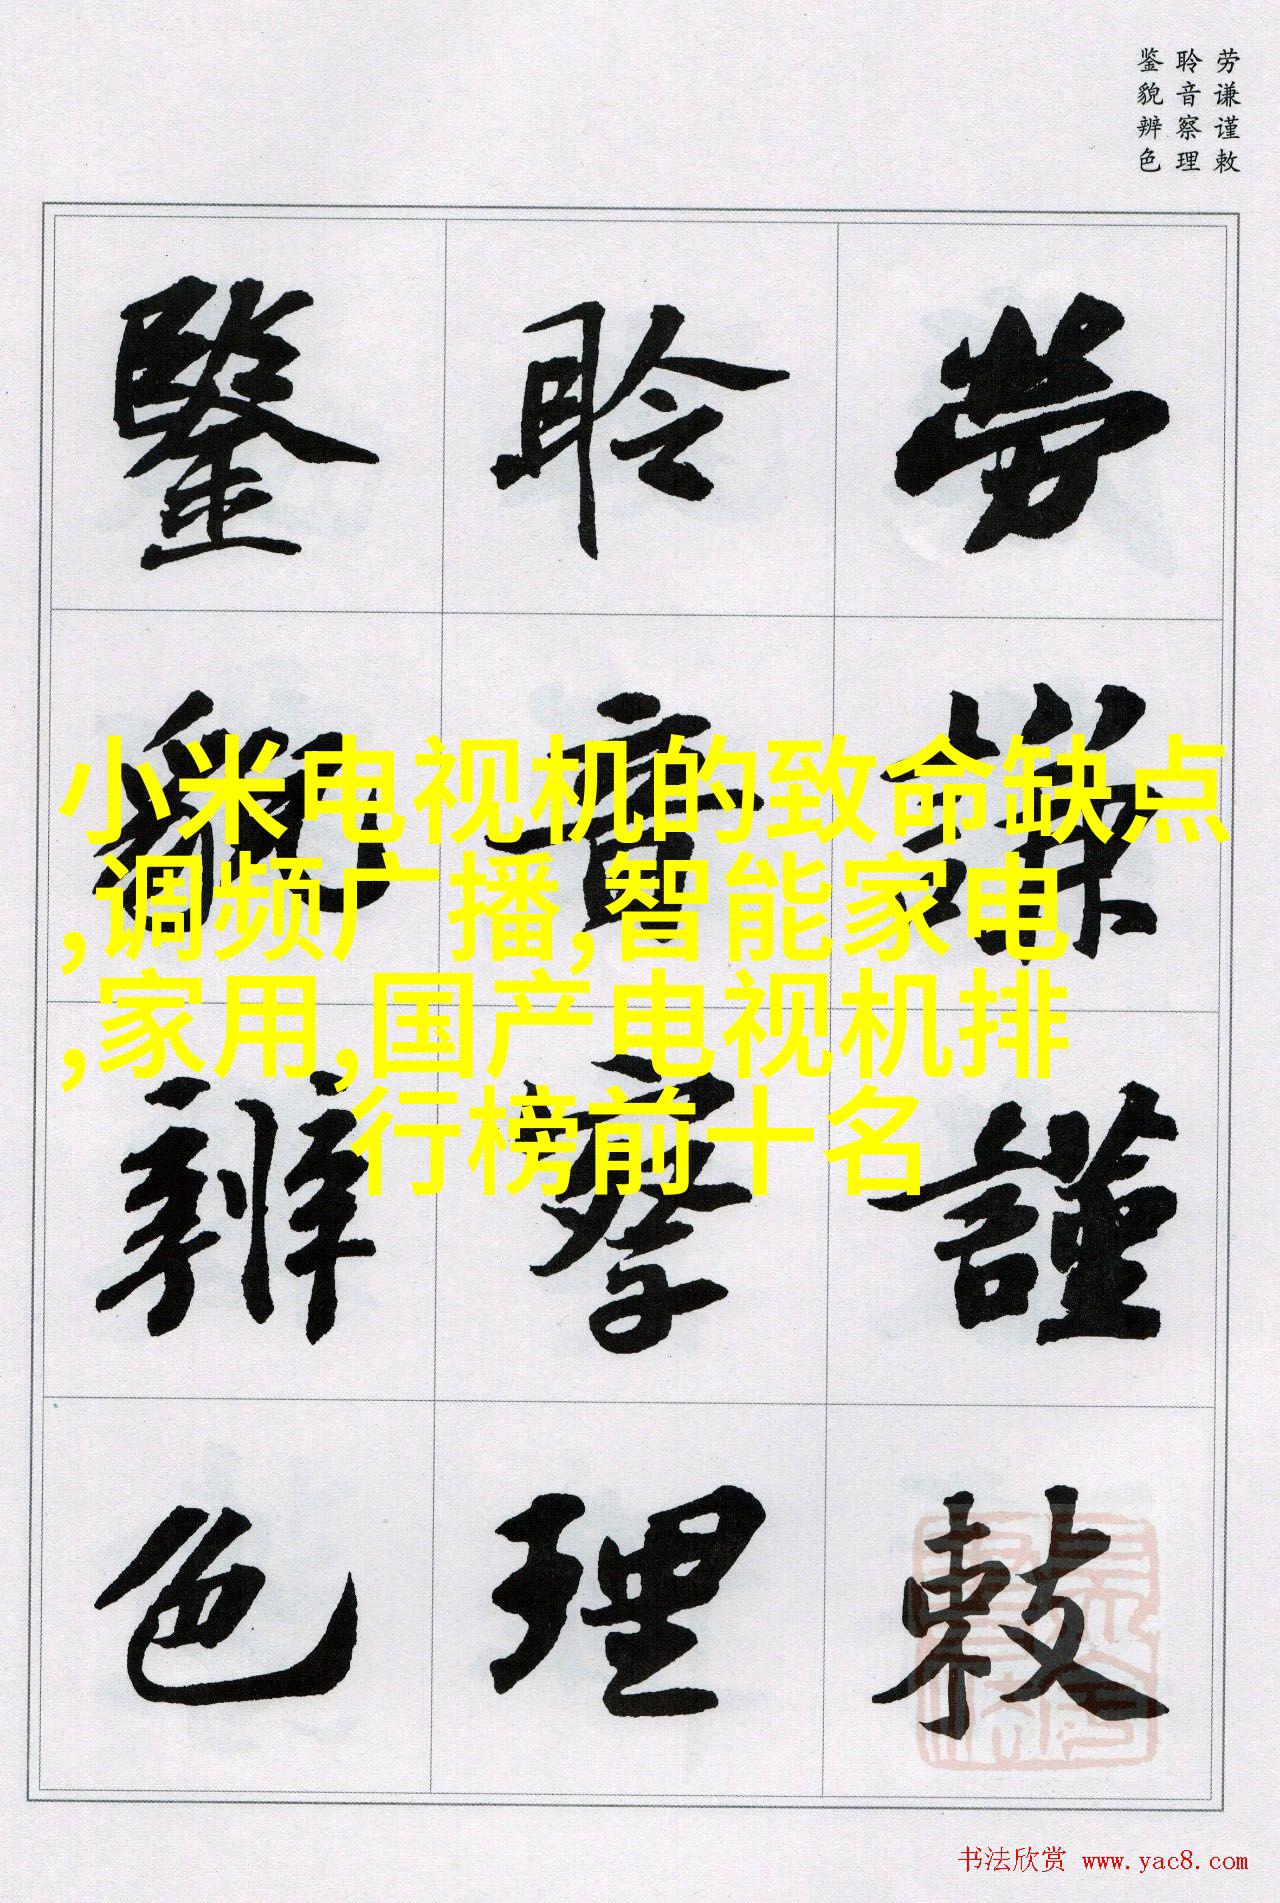 劳谦谨敕
聆音察理
鉴貌辨色
勞謙謹敕
聆音察理
鑒貌辨色
小米电视机的致命缺点
,调频广播,智能家电
,家用,国产电视机排
行榜前十名
书法欣赏 www.yac8.com